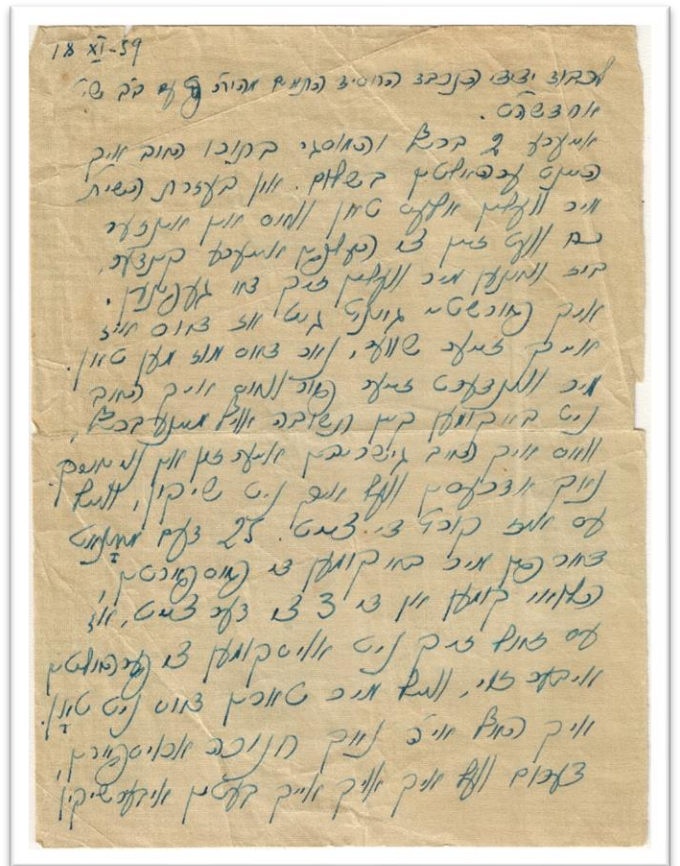 18 XI-59
לכבוד ידידי הנכבד החסיד התמים מהור"ר עם ב"ב שי'
אחדשה"ט.
אייערע 2 בריוו והמוסגר בתוכו האב איך
היינט ערהאלטן בשלום. און בעזרת השי"ת
מיר וועלן אלעס טאן וואס אין אונזער
כח וועט זיין צו העלפן אייערע קינדער,
ביז וואנען מיר וועלן זיך דא געפינען.
איך פארשטיי גאנץ גוט אז דאס איז
אייך זייער שווער, נאר דאס מוז מען טאן.
מיר וואונדערט זייער פאר וואס איך האב
ניט באקומען קיין תשובה אויף מיינע בריוו,
וואס איך האב געשריבן אייער זון אין
נאך אדרעסן וועל איך ניט שיקין, ווייל
עס איז קורץ די צייט. 25 דעם מאנאט
דארפן מיר באקומען די פאספארטן,
הלואי קומען אין די 3 צו דער צייט, אז
עס זאל זיך ניט אויסקומען צו פערהאלטן
איבער זיי, ווייל מיר טארן דאס ניט טאן.
איך האף אי"ה נאך חנוכה ארויספארן,
דערום וועל איך אויך אייך בעטן איבערשיקין